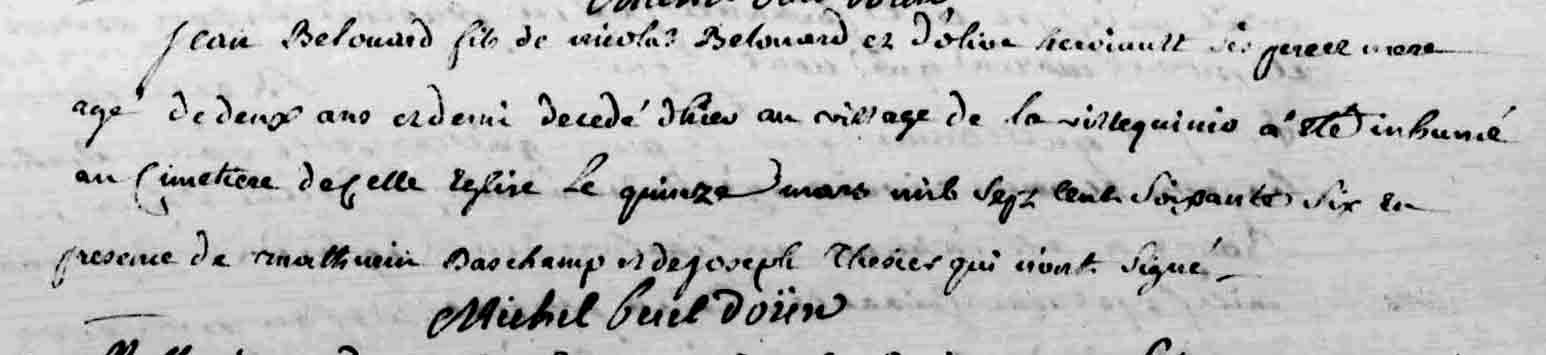 Jean Belouard fils de nicolas Belouard et d'olive heroiault ses pere et mere
agé de deux ans et demi decedé d'hier au village de la villequinio a eté inhumé
au Cimetiere de Celle Eglise Le quinze mars mil sept cent soixante six en
presence de mathurin Baschamp et de joseph Thesier qui n'ont signé
Michel bucl doüen